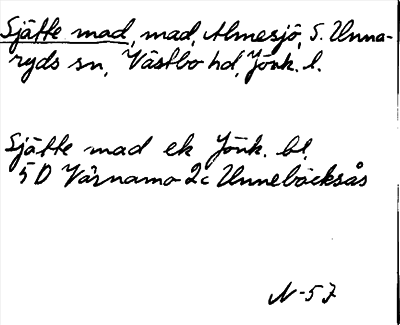 Sjätte mad, mad, Almesjö, S. Unna-
ryds sn, Västbo hd, Jönk. l.
Sjätte mad ek Jönk. bl.
5 D Värnamo 2c Unnebäcksås
N-57